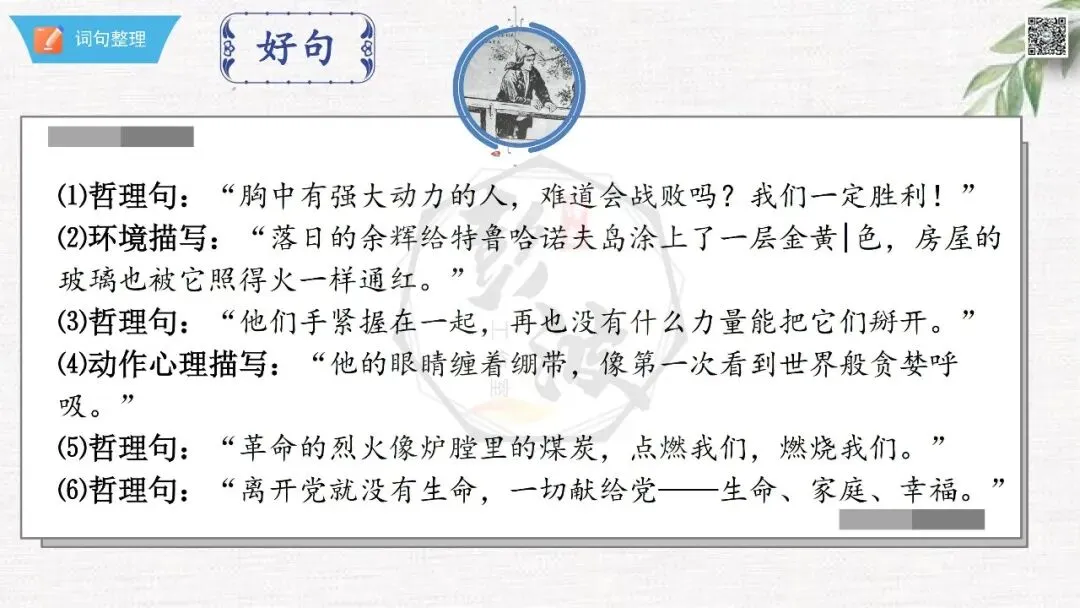 词句整理
好句
(1)哲理句：“胸中有强大动力的人，难道会战败吗？我们一定胜利！”
(2)环境描写：“落日的余辉给特鲁哈诺夫岛涂上了一层金黄|色，房屋的
玻璃也被它照得火一样通红。”
(3)哲理句：“他们手紧握在一起，再也没有什么力量能把它们掰开。”
(4)动作心理描写：“他的眼睛缠着绷带，像第一次看到世界般贪婪呼
吸。”
(5)哲理句：“革命的烈火像炉膛里的煤炭，点燃我们，燃烧我们。”
(6)哲理句：“离开党就没有生命，一切献给党——生命、家庭、幸福。”